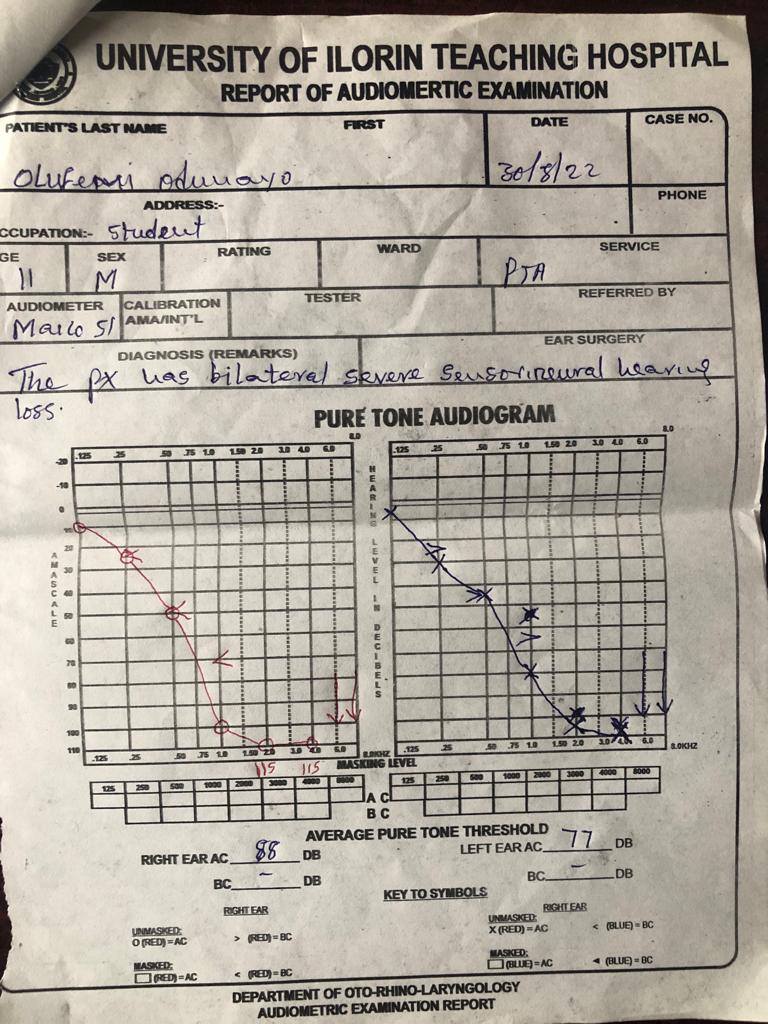 UNIVERSITY OF ILORIN TEACHING HOSPITAL
REPORT OF AUDIOMERTIC EXAMINATION
PATIENT'S LAST NAME FIRST DATE CASE NO.
Olufemi Odunayo 30/8/22
ADDRESS:- PHONE
CCUPATION:- Student
GE SEX RATING WARD SERVICE
11 M PTA
AUDIOMETER CALIBRATION TESTER REFERRED BY
AMA/INT'L
51
DIAGNOSIS (REMARKS) EAR SURGERY
The px has bilateral severe sensorineural hearing
loss.
PURE TONE AUDIOGRAM
8.0 8.0
.125 .25 .50 .75 1.0 1.50 2.0 3.0 4.0 6.0 .125 .25 .50 .75 1.0 1.50 2.0 3.0 4.0 6.0
-20
-10
0
10
20
30
40
50
60
70
80
90
100
110
AMASCALE
HEARING LEVEL IN DECIBELS
.125 .25 .50 .75 1.0 1.50 2.0 3.0 4.0 6.0 8.0KHZ .125 .25 .50 .75 1.0 1.50 2.0 3.0 4.0 6.0 8.0KHZ
115 115
MASKING LEVEL
125 250 500 1000 2000 3000 4000 8000 125 250 500 1000 2000 3000 4000 8000
A C
B C
AVERAGE PURE TONE THRESHOLD
RIGHT EAR AC 88 DB LEFT EAR AC 77 DB
BC - DB BC - DB
KEY TO SYMBOLS
RIGHT EAR RIGHT EAR
UNMASKED: UNMASKED:
O (RED) = AC > (RED) = BC X (RED) = AC < (BLUE) = BC
MASKED: MASKED:
(RED) = AC < (RED) = BC (BLUE) = AC ◄ (BLUE) = BC
DEPARTMENT OF OTO-RHINO-LARYNGOLOGY
AUDIOMETRIC EXAMINATION REPORT